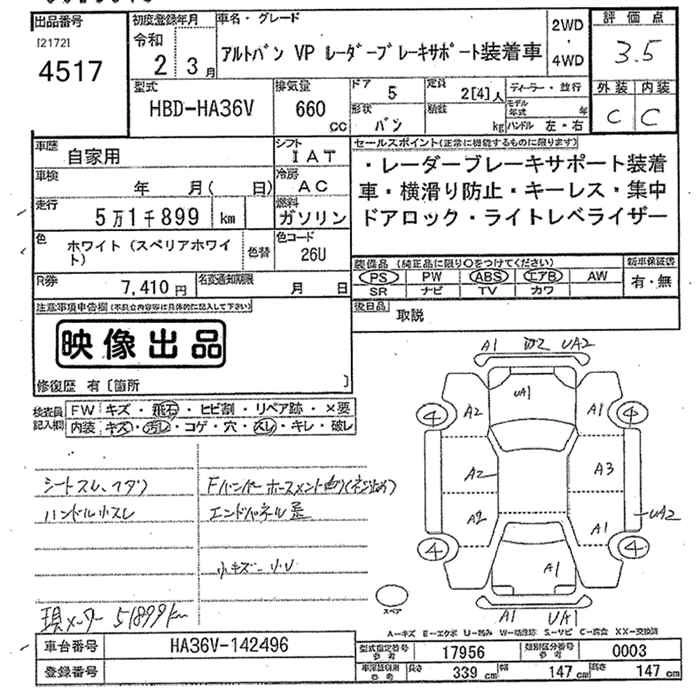 出品番号
[2172]
4517
初度登録年月
令和
2 3月
車名・グレード
アルトバン VP レーダーブレーキサポート装着車
2WD
・
4WD
評価点
3.5
外装 内装
C C
型式
HBD-HA36V
排気量
660
CC
ドア
5
形状
バン
定員
2[4]人
積載
kg
ディーラー・並行
モデル年式 年
ハンドル 左・右
車歴
自家用
シフト
IAT
車検
年 月( 日)
冷房
AC
走行
5万1千899 km
燃料
ガソリン
色
ホワイト(スペリアホワイト)
色替
色コード
26U
R券
7,410円
名変通知期限
月 日
セールスポイント(正常に機能するものに限ります)
・レーダーブレーキサポート装着
車・横滑り防止・キーレス・集中
ドアロック・ライトレベライザー
装備品 (純正品に限り○をつけてください)
PS PW ABS エアB AW
SR ナビ TV カワ
新車保証書
有・無
後日品
取説
注意事項申告欄(不具合内容等は具体的に記入して下さい)
映像出品
修復歴 有〔箇所 〕
検査員記入欄
FW キズ・飛石・ヒビ割・リペア跡・×要
内装 キズ・汚レ・コゲ・穴・スレ・キレ・破レ
シートスレ、
ハンドル小スレ
Fバンパーホースメント曲
エンドパネル歪
小キズ・U
現メーター 51899km
A1 W2 UA2
UA1
A2 A1
4 4
A2 A3
A2 A1
UA2
4 4
A1
スペア
A1 UA1
A-キズ E-エクボ U-凹み W-補修跡 S-サビ C-腐食 XX-交換済
車台番号
HA36V-142496
登録番号
型式指定番号
参考
17956
類別区分番号
参考
0003
車両諸元
参考
長さ 339 cm 幅 147 cm 高さ 147 cm